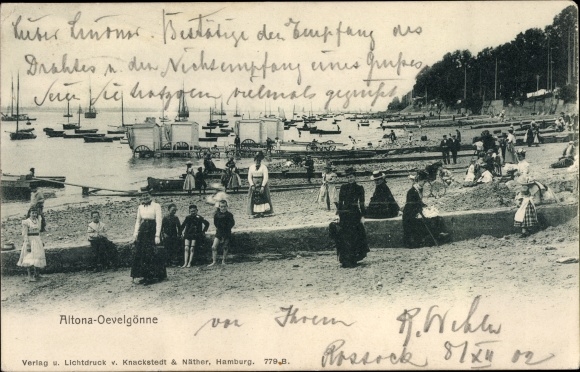 Lieber Lindner. Bestätige den Empfang des
Drahtes u. den Nichtempfang eines Grußes
Seien Sie trotzdem vielmals gegrüßt
Altona-Oevelgönne
von Ihrem R. Wehln
Rossock 8/XII 02
Verlag u. Lichtdruck v. Knackstedt & Näther, Hamburg. 779 B.